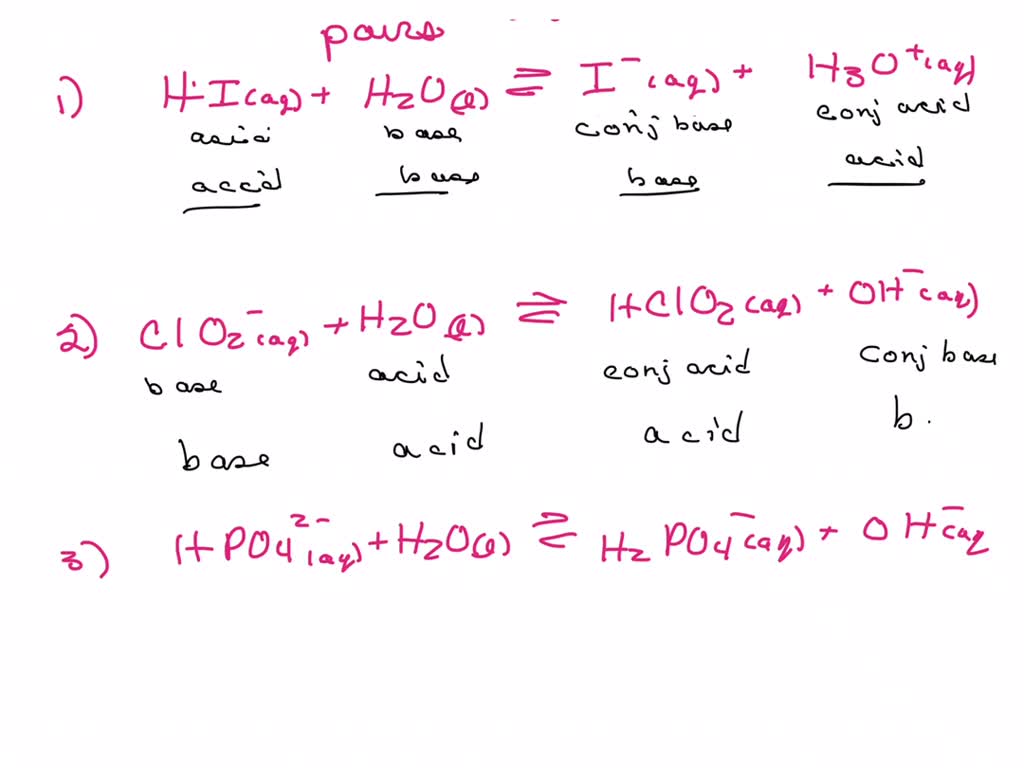 pairs
1) HI(aq) + H2O(l) ⇌ I⁻(aq) + H3O⁺(aq)
acid base conj base conj acid
accid base base acid
2) ClO2⁻(aq) + H2O(l) ⇌ HClO2(aq) + OH⁻(aq)
base acid conj acid conj base
base acid acid b.
3) HPO4²⁻(aq) + H2O(l) ⇌ H2PO4⁻(aq) + OH⁻(aq